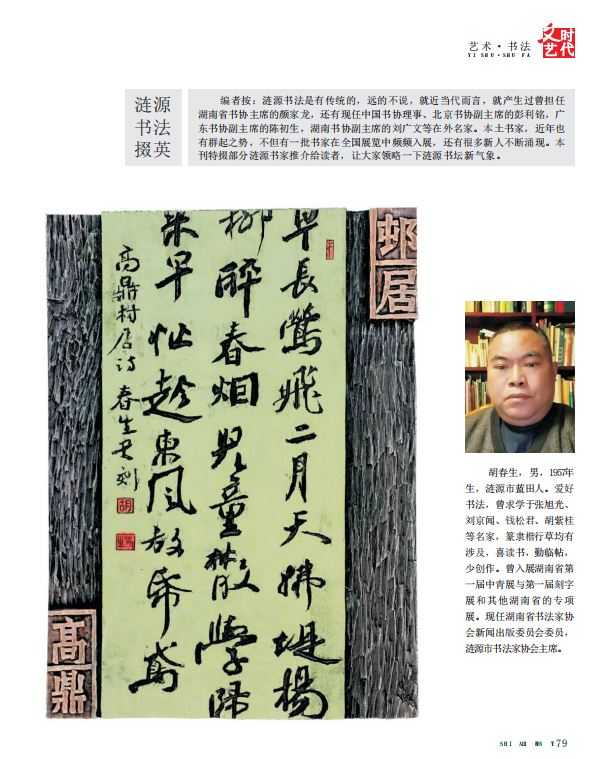 艺术·书法
YI SHU·SHU FA
文艺
时代
涟源
书法
掇英
编者按：涟源书法是有传统的，远的不说，就近当代而言，就产生过曾担任
湖南省书协主席的颜家龙，还有现任中国书协理事、北京书协副主席的彭利铭，广
东书协副主席的陈初生，湖南书协副主席的刘广文等在外名家。本土书家，近年也
有群起之势，不但有一批书家在全国展览中频频入展，还有很多新人不断涌现。本
刊特掇部分涟源书家推介给读者，让大家领略一下涟源书坛新气象。
邨居
草長鶯飛二月天拂堤楊
柳醉春烟兒童散學歸
来早忙趁東風放紙鳶
高鼎村居诗 春生书刻
胡
髙鼎
胡春生，男，1957年
生，涟源市蓝田人。爱好
书法，曾求学于张旭光、
刘京闻、钱松君、胡紫桂
等名家，篆隶楷行草均有
涉及，喜读书，勤临帖，
少创作。曾入展湖南省第
一届中青展与第一届刻字
展和其他湖南省的专项
展。现任湖南省书法家协
会新闻出版委员会委员，
涟源市书法家协会主席。
79